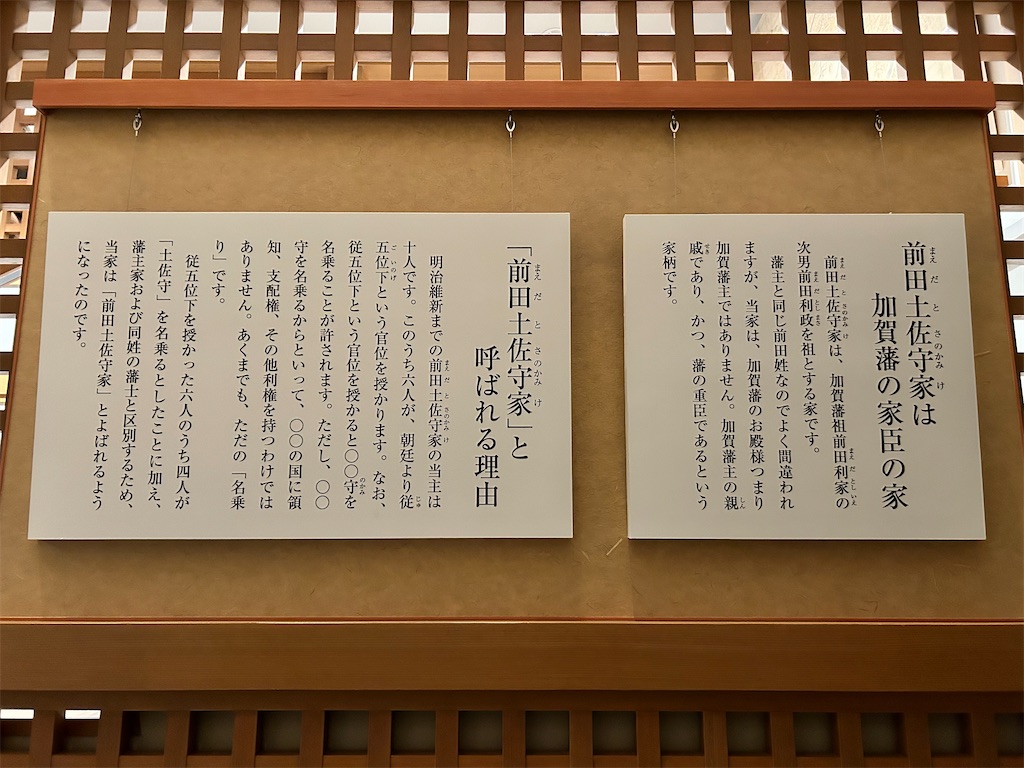 前田土佐守家は
加賀藩の家臣の家
前田土佐守家は、加賀藩祖前田利家の
次男前田利政を祖とする家です。
藩主と同じ前田姓なのでよく間違われ
ますが、当家は、加賀藩のお殿様つまり
加賀藩主ではありません。加賀藩主の親
戚であり、かつ、藩の重臣であるという
家柄です。
「前田土佐守家」と
呼ばれる理由
明治維新までの前田土佐守家の当主は
十人です。このうち六人が、朝廷より従
五位下という官位を授かります。なお、
従五位下という官位を授かると〇〇守を
名乗ることが許されます。ただし、〇〇
守を名乗るからといって、〇〇の国に領
知、支配権、その他利権を持つわけでは
ありません。あくまでも、ただの「名乗
り」です。
従五位下を授かった六人のうち四人が
「土佐守」を名乗るとしたことに加え、
藩主家および同姓の藩士と区別するため、
当家は「前田土佐守家」とよばれるよう
になったのです。